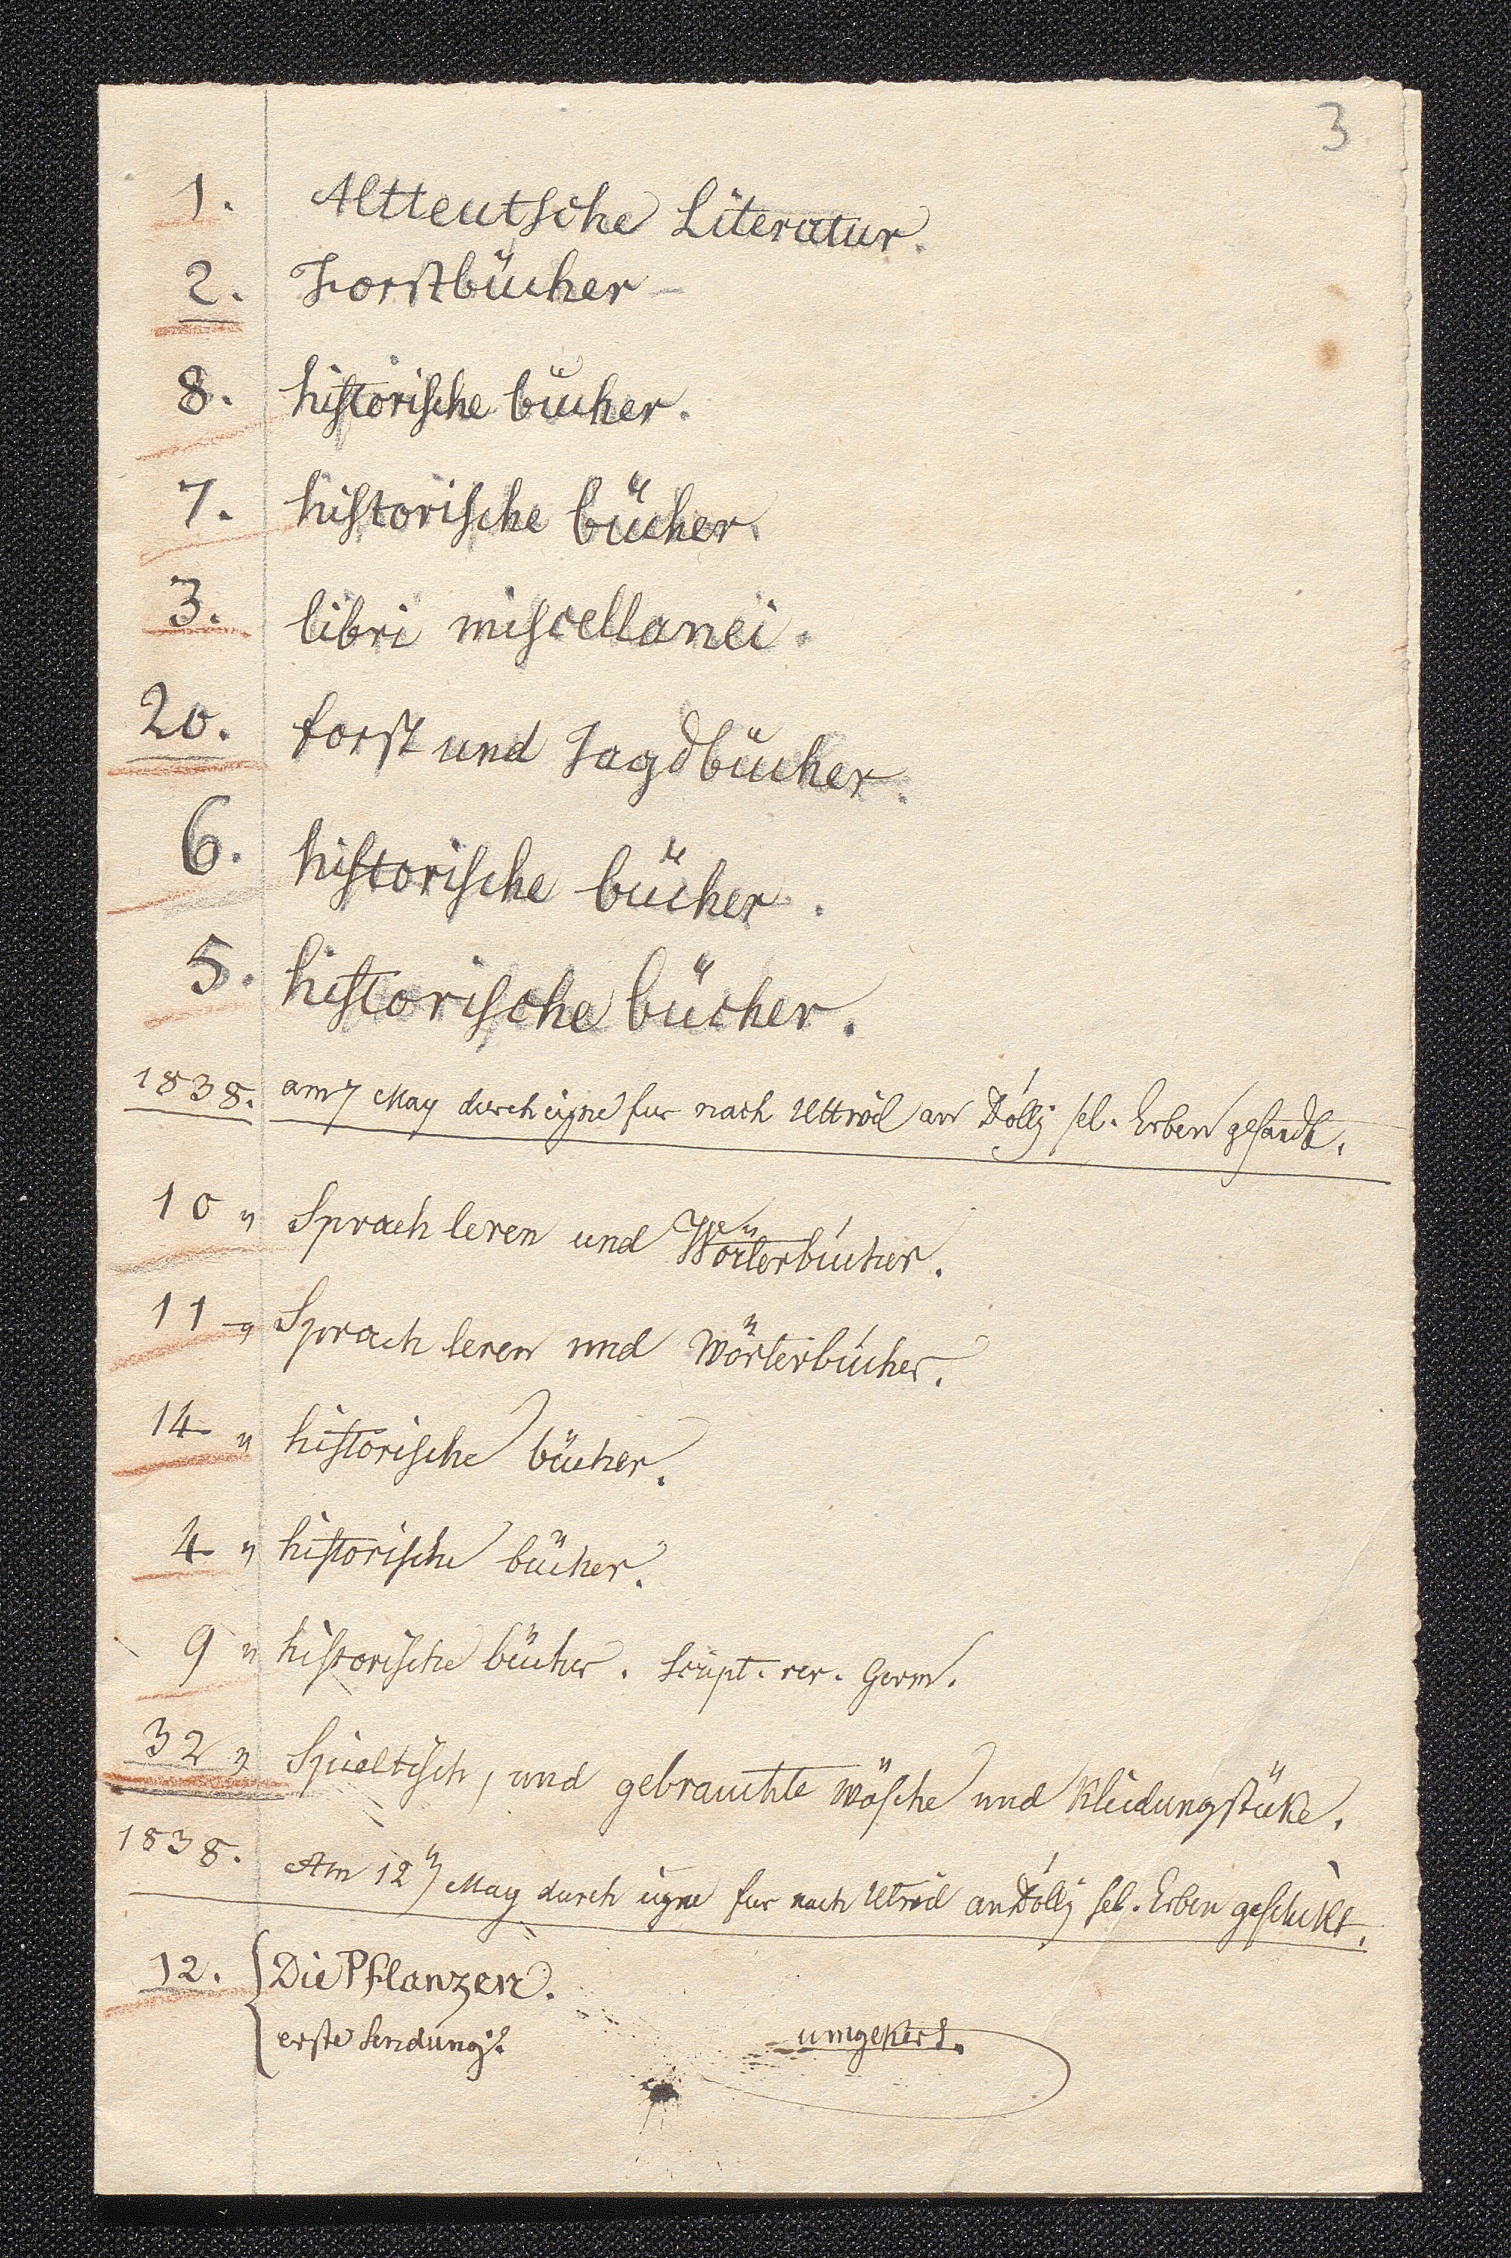 3
1. Altteutsche Literatur.
2. Forstbücher
8. historische bücher.
7. historische bücher.
3. libri miscellanei.
20. forst und Jagdbücher.
6. historische bücher.
5. historische bücher.
1838. am 7 May durch eigne fur nach Uttwil an Dölly sel. Erben gesandt.
10 „ Sprach leren und Wörterbücher.
11 „ Sprach leren und Wörterbücher.
14 „ historische bücher.
4 „ historische bücher.
9 „ historische bücher. script. rer. Germ.
32 „ Spieltisch, und gebrauchte wäsche und kleidungstüke.
1838. Am 12 May durch eigne fur nach Utwil an Dölly sel. Erben geschikt.
12. Die Pflanzen.
erste Sendung.
umgekert.